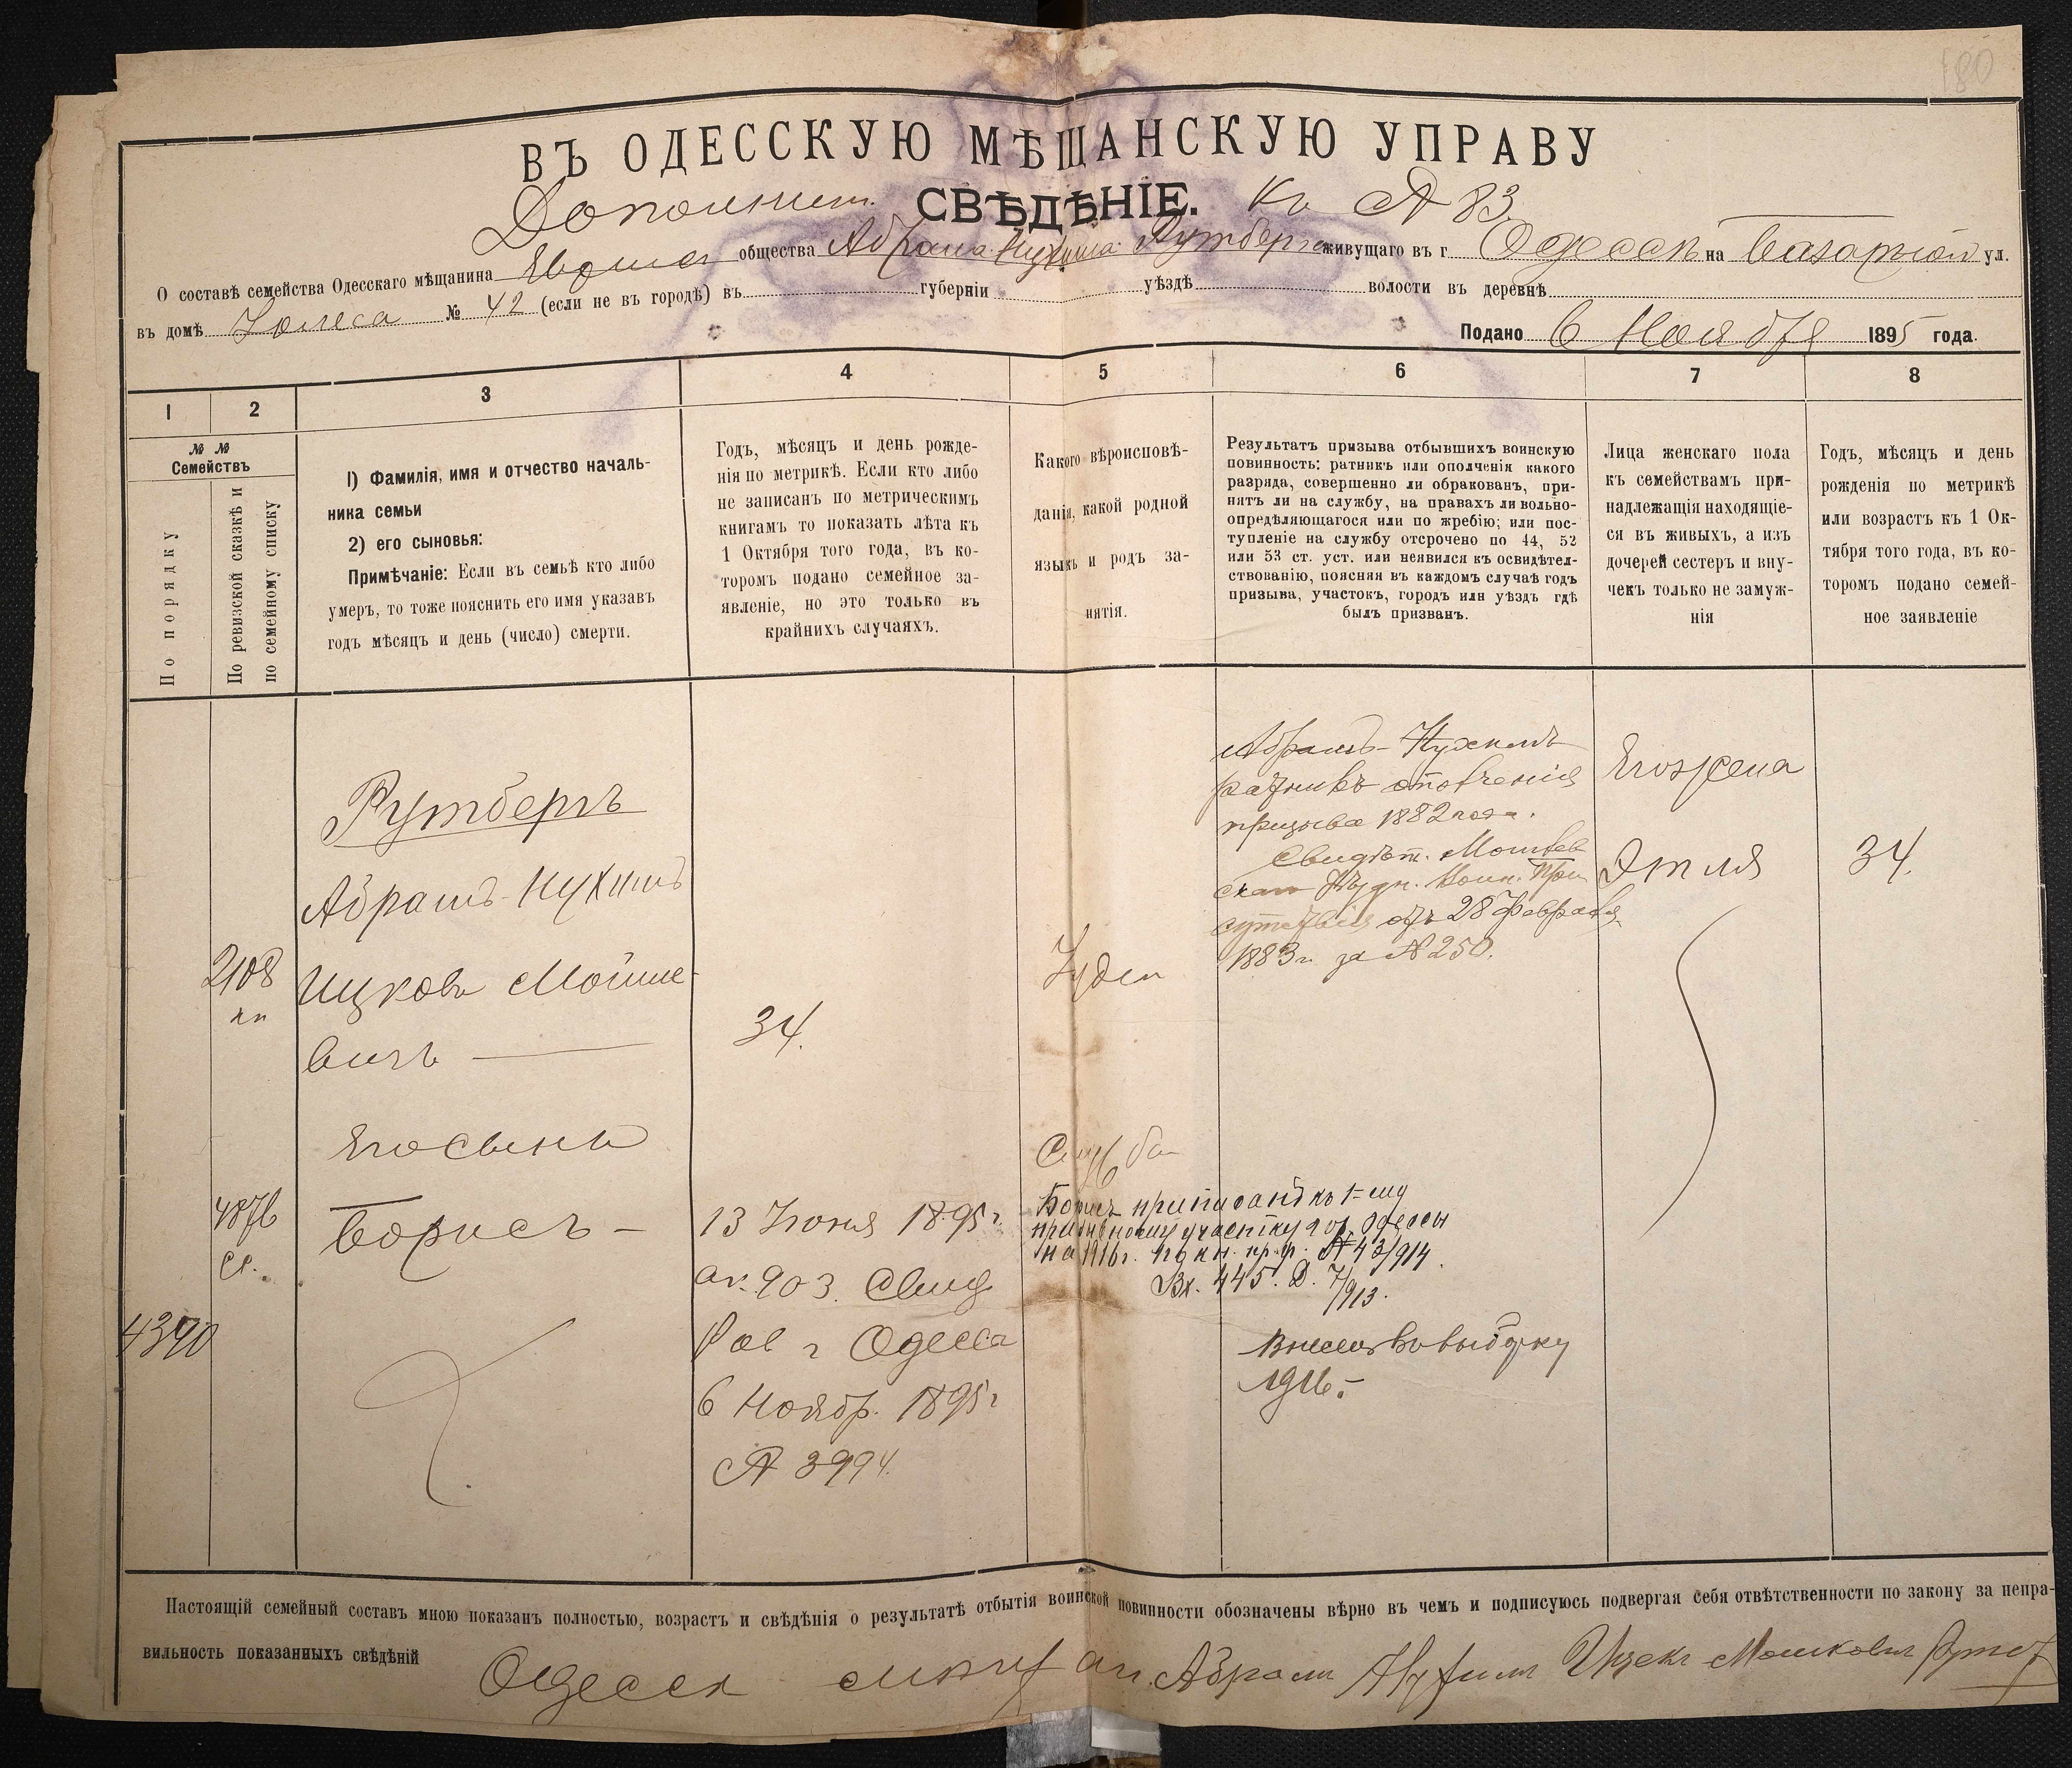 180
ВЪ ОДЕССКУЮ МѢЩАНСКУЮ УПРАВУ
Дополнит. СВѢДѢНІЕ. Къ № 83.
О составѣ семейства Одесскаго мѣщанина общества Абрама-Нухима Рутберга живущаго въ г. Одессѣ на Базарной ул.
въ домѣ № 42 (если не въ городѣ) въ губерніи уѣздѣ волости въ деревнѣ
Подано 6 Ноября 1895 года.
1 2 3 4 5 6 7 8
№ № Семействъ
По порядку
По ревизской сказкѣ и
по семейному списку
1) Фамилія, имя и отчество началь-
ника семьи
2) его сыновья:
Примѣчаніе: Если въ семьѣ кто либо
умеръ, то тоже пояснить его имя указавъ
годъ мѣсяцъ и день (число) смерти.
Годъ, мѣсяцъ и день рожде-
нія по метрикѣ. Если кто либо
не записанъ по метрическимъ
книгамъ то показать лѣта къ
1 Октября того года, въ ко-
торомъ подано семейное за-
явленіе, но это только въ
крайнихъ случаяхъ.
Какого вѣроисповѣ-
данія, какой родной
языкъ и родъ за-
нятія.
Результатъ призыва отбывшихъ воинскую
повинность: ратникъ или ополченія какого
разряда, совершенно ли обракованъ, при-
нятъ ли на службу, на правахъ ли вольно-
опредѣляющагося или по жребію; или пос-
тупленіе на службу отсрочено по 44, 52
или 53 ст. уст. или неявился къ освидѣтел-
ствованію, поясняя въ каждомъ случаѣ годъ
призыва, участокъ, городъ или уѣздъ гдѣ
былъ призванъ.
Лица женскаго пола
къ семействамъ при-
надлежащія находящіе-
ся въ живыхъ, а изъ
дочерей сестеръ и вну-
чекъ только не замуж-
нія
Годъ, мѣсяцъ и день
рожденія по метрикѣ
или возрастъ къ 1 Ок-
тября того года, въ ко-
торомъ подано семей-
ное заявленіе
2108
Рутбергъ
Абрамъ-Нухимъ
Ицковъ Мойше-
вичъ
34.
Іудей
Абрамъ-Нухимъ
ратникъ ополченія
призыва 1882 года.
Свидѣт.
отъ 28 Февраля
1883 г. за № 250.
Его жена
Этля
34.
Его сынъ
4876
4390
Борисъ
13 Іюня 1895 г.
ак. 903. Свид
Рав г Одесса
6 Ноябр. 1895 г
№ 3994.
Служба
Борисъ приписанъ къ 1-му
призывному участку гор. Одессы
на 1916 г. № 43/914.
Вх. 445. Д. 7/913.
Внесенъ въ выборку
1916.
Настоящій семейный составъ мною показанъ полностью, возрастъ и свѣдѣнія о результатѣ отбытія воинской повинности обозначены вѣрно въ чемъ и подписуюсь подвергая себя отвѣтственности по закону за непра-
вильность показанныхъ свѣдѣній
Одесск мѣщан. Абрам Нухим Ицек Мошкович Рутб